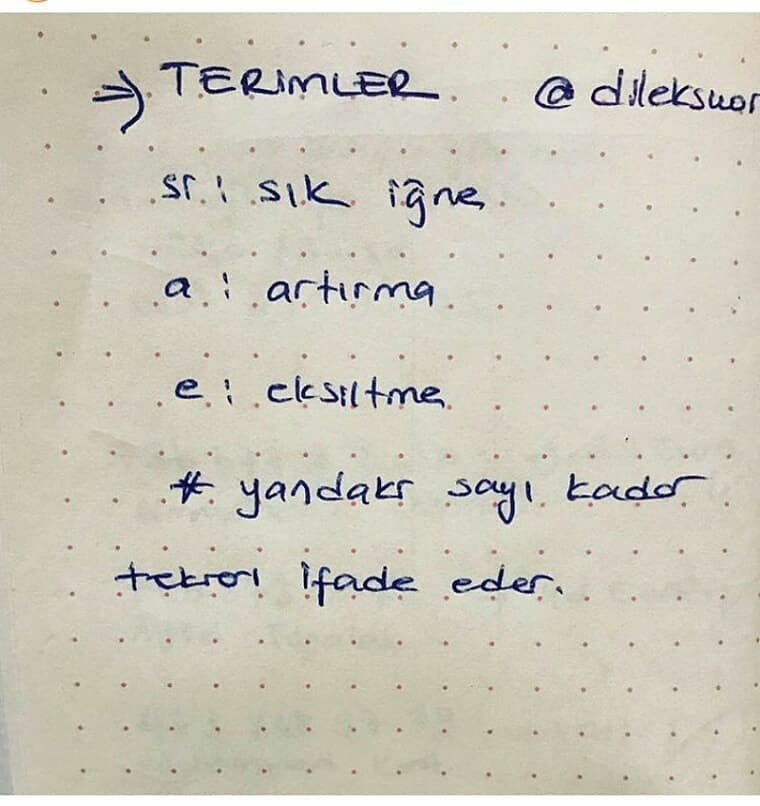 ⇒ TERİMLER @dileksuor
si : sık iğne
a : artırma
e : eksiltme
* yandaki sayı kadar
tekrarı ifade eder.